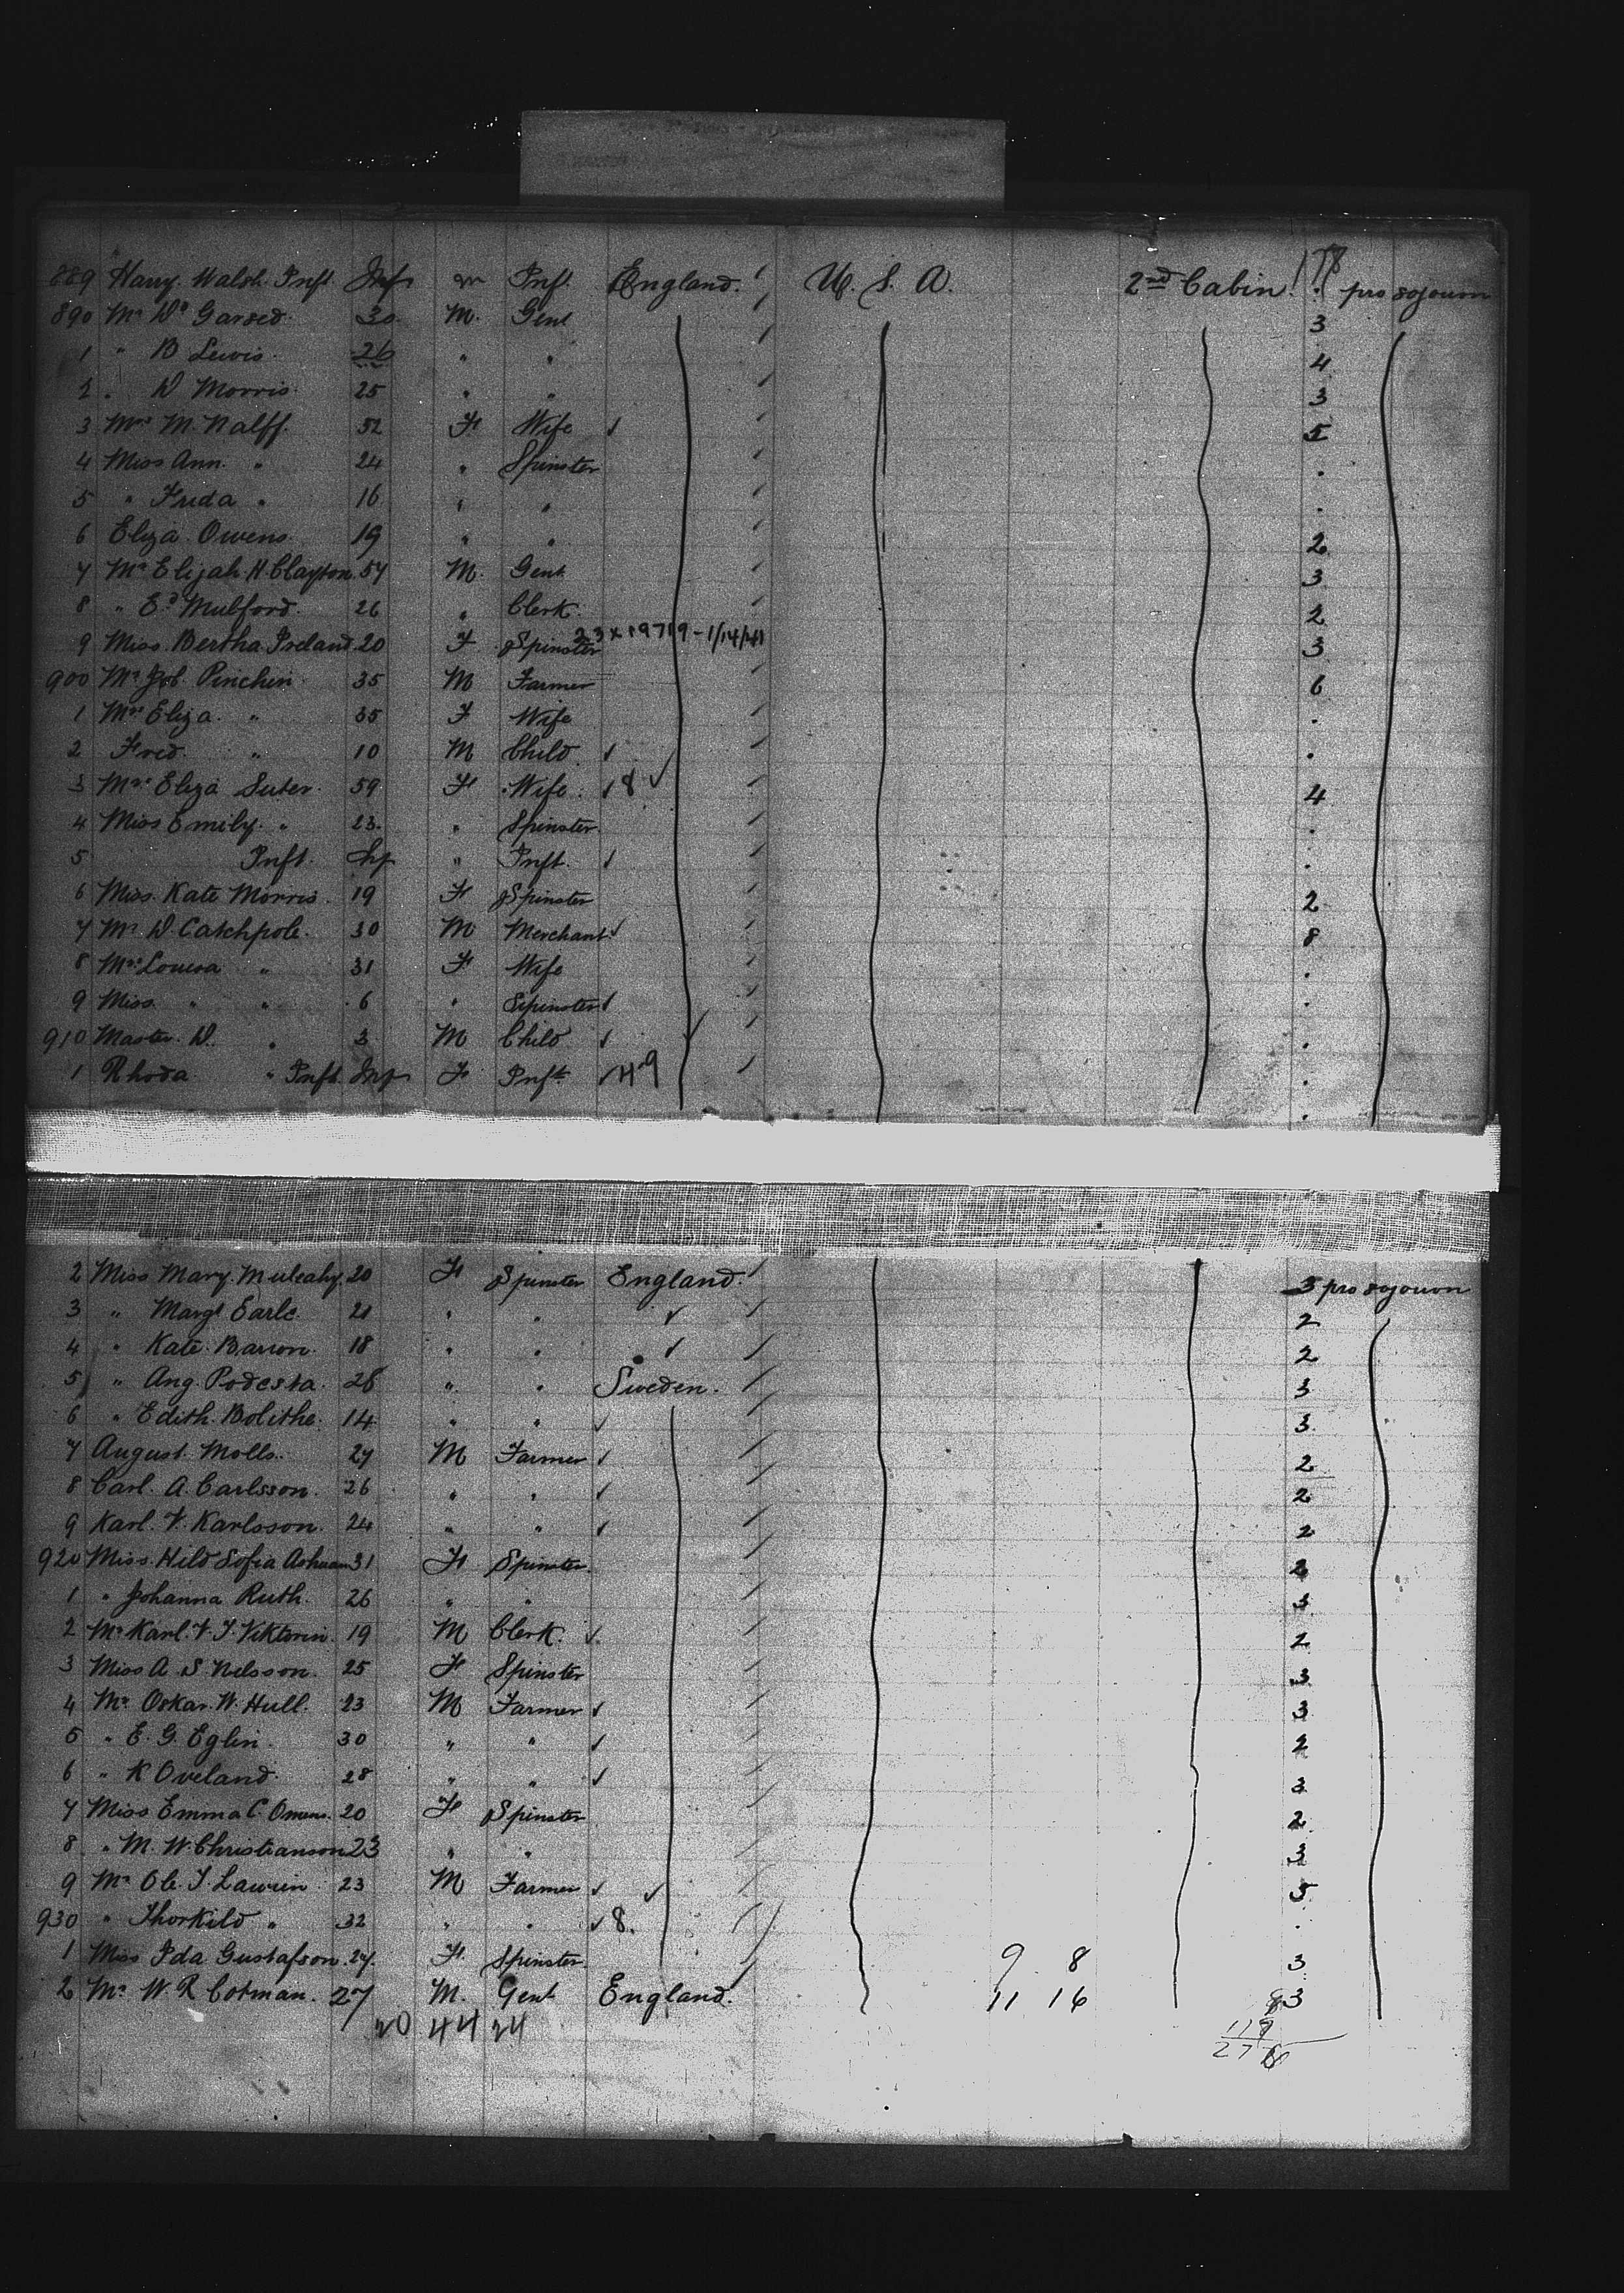 178
889 Harry Walsh Inft Inf m Inf. England. U. S. A. 2nd Cabin . pro sojourn
890 Mr Wm Garsed 30 M. Gent 3
1 " B Lewis 26 " " 4
2 " W Morris 25 " " 3
3 Mrs M. Nalff. 52 F Wife 5
4 Miss Ann. " 24 " Spinster .
5 " Frida " 16 " " .
6 Eliza Owens 19 " " 2
7 Mr Elijah H. Clayton 57 M. Gent 3
8 " Ed Mulford 26 " Clerk 2
9 Miss Bertha Ireland 20 F Spinster 23 x 19719 - 1/14/41 3
900 Mr Job. Pinchin 35 M Farmer 6
1 Mrs Eliza. " 35 F Wife .
2 Fred. " 10 M Child .
3 Mrs Eliza Suter 59 F Wife 8 4
4 Miss Emily " 23 " Spinster .
5 Inft. Inf " Inft. .
6 Miss Kate Morris 19 F Spinster 2
7 Mr W. Catchpole. 30 M Merchant 8
8 Mrs Louisa " 31 F Wife .
9 Miss " " 6 " Spinster .
910 Master W. " 3 M Child .
1 Rhoda " Inft Inf F Inft .
2 Miss Mary Mulcahy 20 F Spinster England. 3 pro sojourn
3 " Margt Earle 21 " " 2
4 " Kate Barron 18 " " 2
5 " Ang. Podesta. 26 " " Sweden. 3
6 " Edith Bolithe 14 " " 3
7 August Molls. 27 M Farmer 2
8 Carl. A. Carlsson. 26 " " 2
9 Karl. V. Karlsson. 24 " " 2
920 Miss Hild Sofia 31 F Spinster 2
1 " Johanna Ruth. 26 " " 3
2 Mr Karl. V. J. Viktorin 19 M Clerk. 2
3 Miss A. S. Nilsson. 25 F Spinster 3
4 Mr Oskar. W. Hull. 23 M Farmer 3
5 " E. G. Eglin. 30 " " 2
6 " K Oveland 28 " " 3
7 Miss Emma C. 20 F Spinster 2
8 " M. W. Christianson 23 " " 3
9 Mr Ole. J. Laurin 23 M Farmer 5
930 " Thorkild " 32 " " 8. .
1 Miss Ida Gustafson. 27. F. Spinster 9 8 3
2 Mr W. R Cotman. 27 M. Gent England. 11 16 3
20 44 24